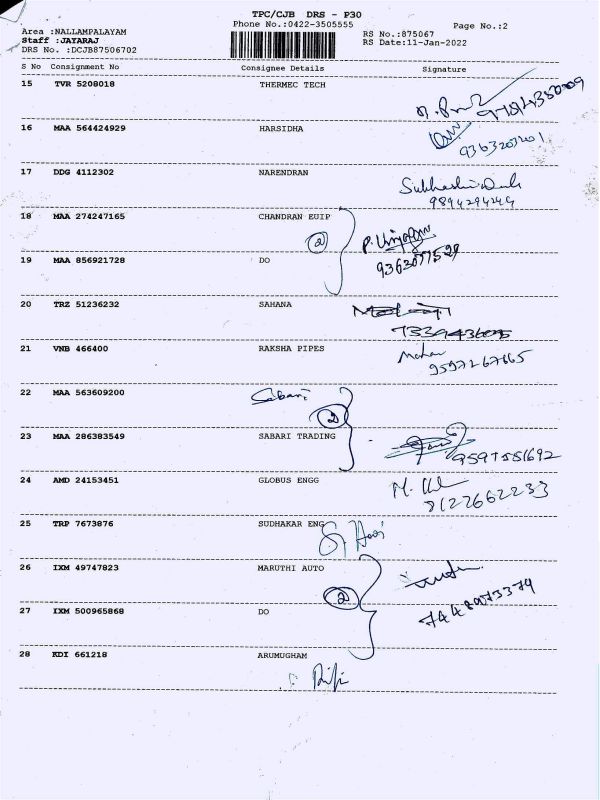 TPC/CJB DRS - P30
Phone No.:0422-3505555
Page No.:2
Area :NALLAMPALAYAM
Staff :JAYARAJ
DRS No. :DCJB87506702
RS No.:875067
RS Date:11-Jan-2022
S No Consignment No Consignee Details Signature
15 TVR 5208018 THERMEC TECH
16 MAA 564424929 HARSIDHA
9363203201
17 DDG 4112302 NARENDRAN
9894294249
18 MAA 274247165 CHANDRAN EUIP
2
19 MAA 856921728 DO
9363077529
20 TRZ 51236232 SAHANA
21 VNB 466400 RAKSHA PIPES
Mohan
9597267665
22 MAA 563609200 Sabari
2
23 MAA 286383549 SABARI TRADING
9597551692
24 AMD 24153451 GLOBUS ENGG
8122662233
25 TRP 7673876 SUDHAKAR ENG
26 IXM 49747823 MARUTHI AUTO
2
7448973379
27 IXM 500965868 DO
28 KDI 661218 ARUMUGHAM